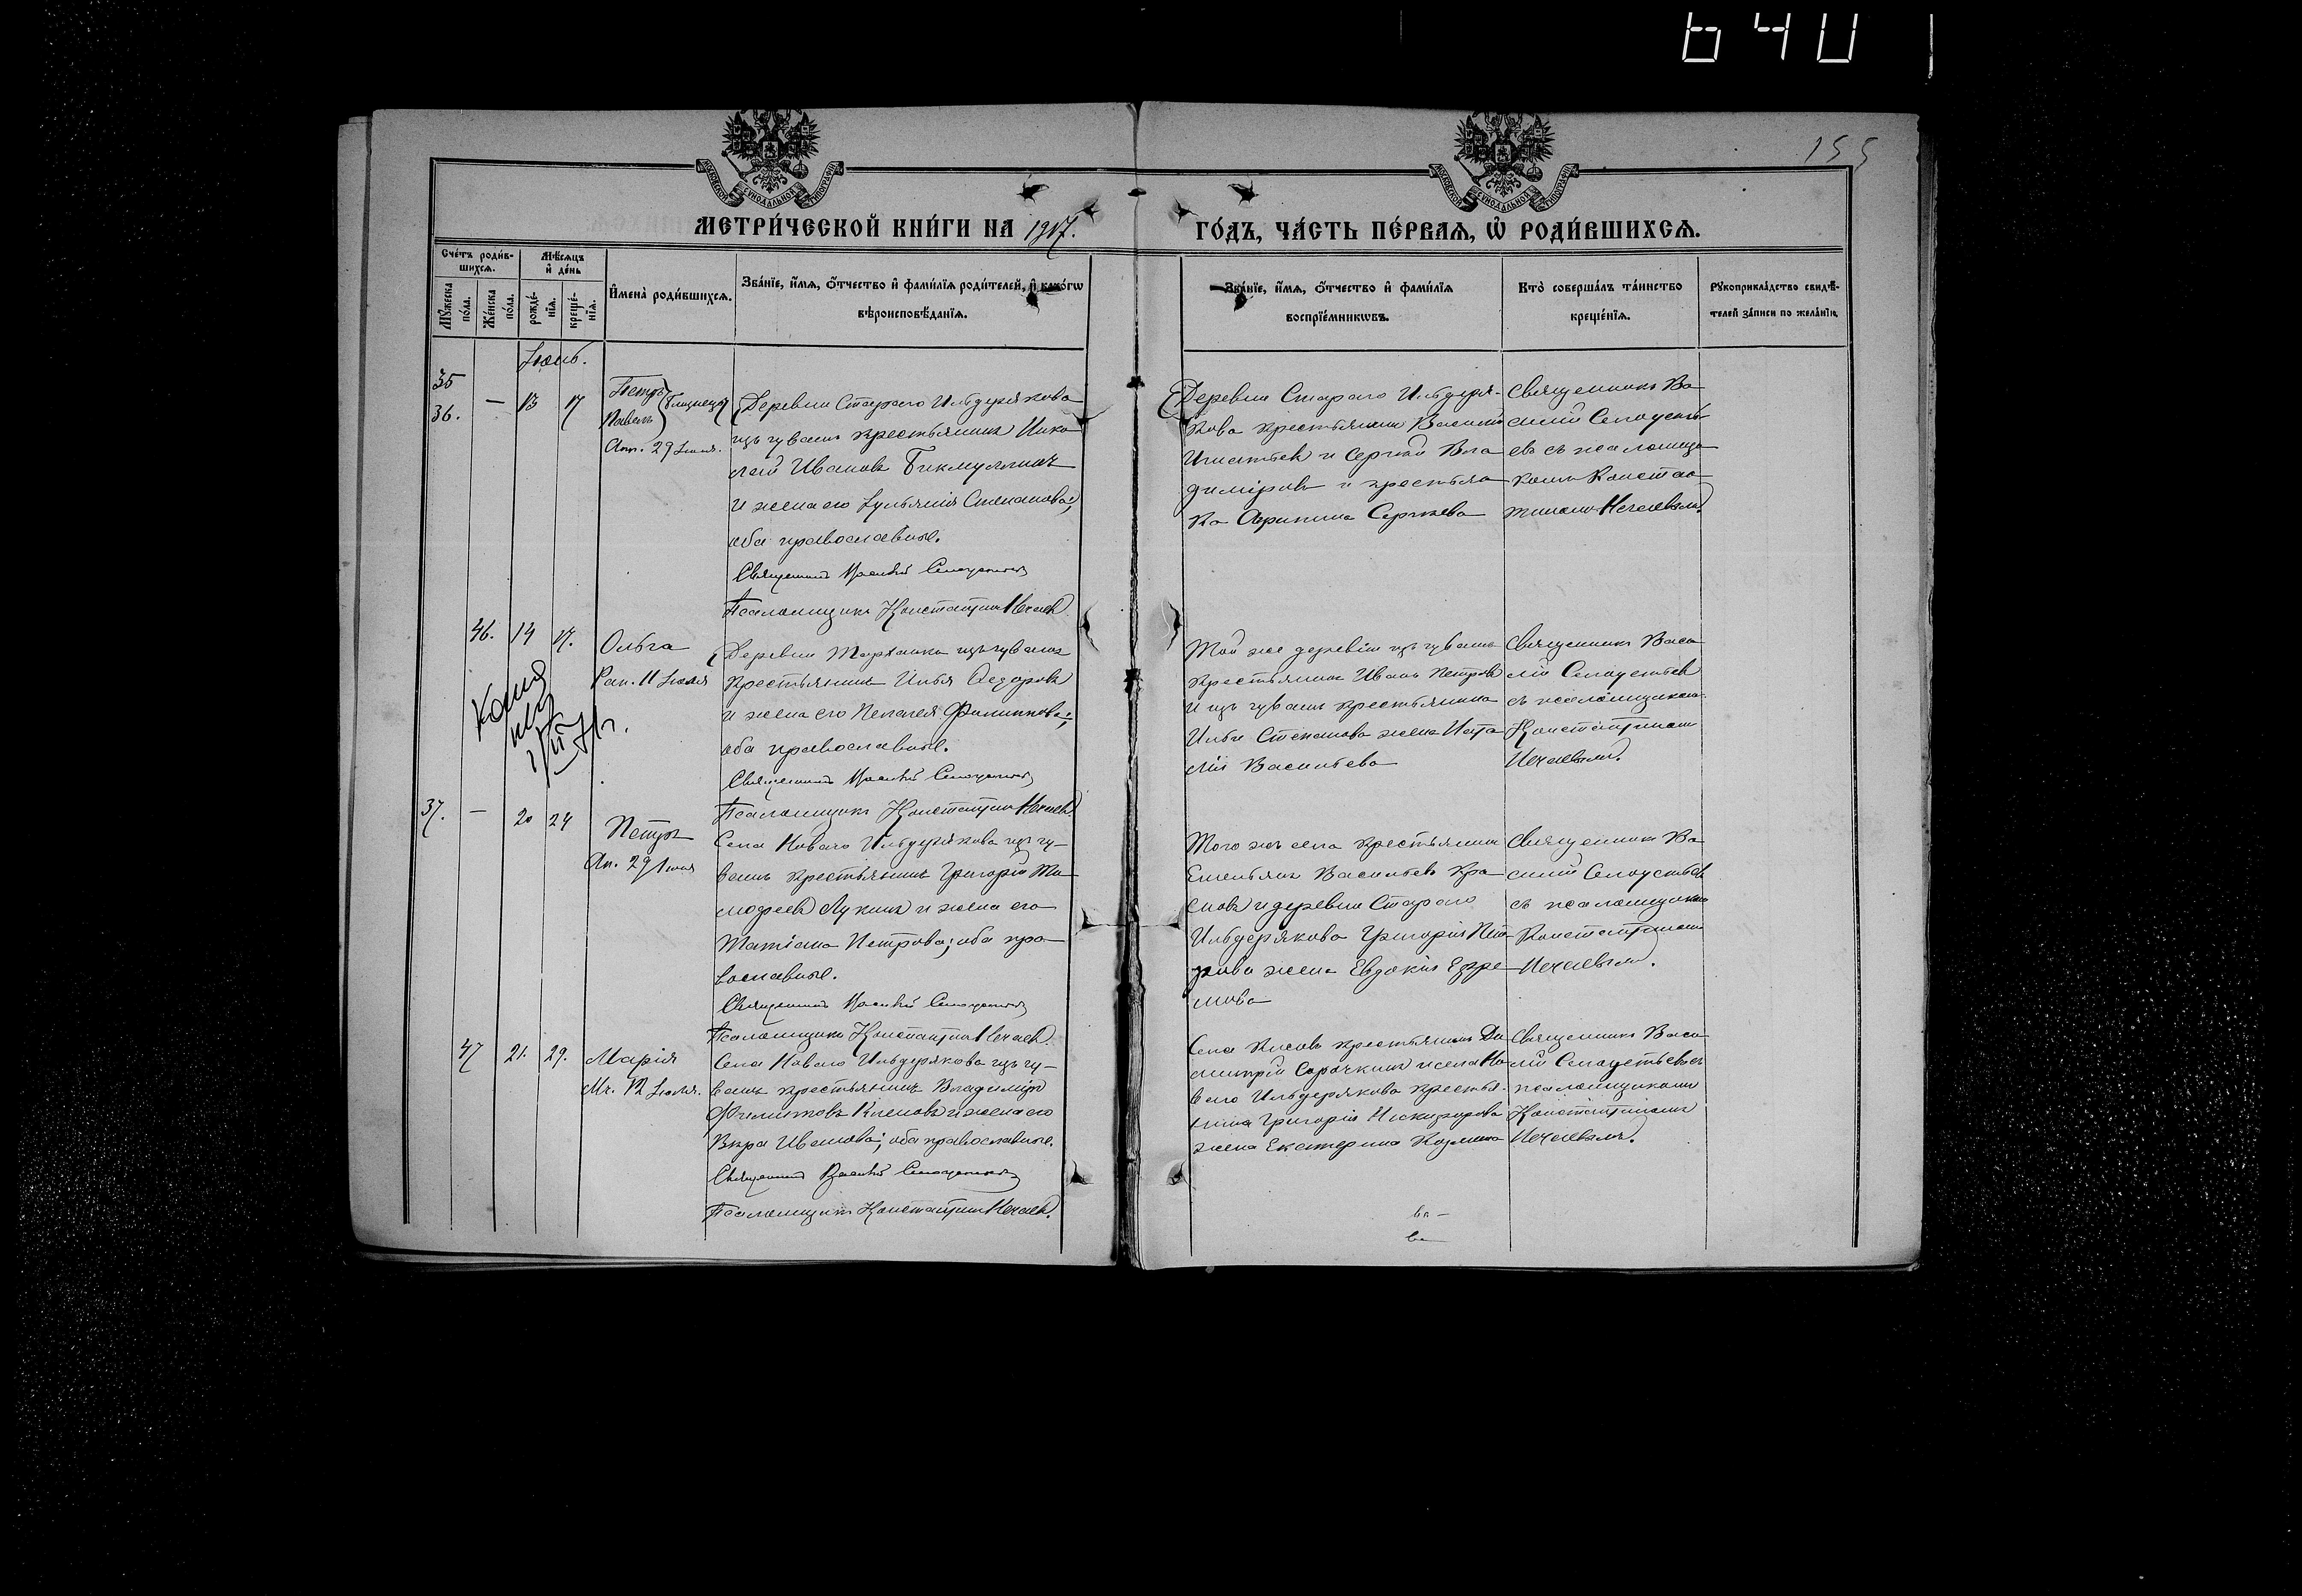 155
МЕТРИ́ЧЕСКОЙ КНИ́ГИ НА 1917.
ГО́ДЪ, ЧА́СТЬ ПЕ́РВАЯ, Ѡ РОДИ́ВШИХСЯ.
Сче́тъ роди́в-
шихся.
Мѣ́сяцъ
и҆ де́нь
Мꙋ́жеска
по́ла.
Же́нска
по́ла.
рожде́-
нїя.
креще́-
нїя.
И҆мена̀ роди́вшихся.
Зва́нїе, и҆́мя, ѻ҆́тчество и҆ фами́лїя роди́телей, и҆ како́гѡ
вѣроисповѣ́данїя.
Зва́нїе, и҆́мя, ѻ҆́тчество и҆ фами́лїя
воспрїе́мникѡвъ.
Кто̀ соверша́лъ та́инство
креще́нїя.
Рꙋкоприкла́дство свидѣ́-
телей за́писи по жела́нїю.
Іюнь.
35
36. — 13 17
Петръ
Павелъ близнецы
Ап. 29 Іюня.
Деревни Стараго Ильдерякова
изъ чувашъ крестьянинъ Нико
лай Ивановъ Бикмуллинъ
и жена его Іульянія Степанова;
оба православные.
Священникъ Василій
Псаломщикъ Константинъ Нечаевъ
Деревни Стараго Ильдеря-
кова крестьянинъ Василій
Игнатьевъ и Сергѣй Вла
диміровъ и крестьян
ка Агрипина Сергѣева
Священникъ Ва
силій
въ съ псаломщи
комъ Констан
тиномъ Нечаевымъ.
46. 14 17.
Ольга
Рап. 11 Іюля
Копия
Деревни Тарханки изъ чувашъ
крестьянинъ Илья Ѳедоровъ
и жена его Пелагея Филиппова;
оба православные.
Священникъ Василій
Псаломщикъ Константинъ Нечаевъ.
Той же деревни изъ чувашъ
крестьянинъ Иванъ Петровъ
и изъ чувашъ крестьянина
Ильи Степанова жена Ната
лія Васильева
Священникъ Васи
лій
съ псаломщикомъ
Константиномъ
Нечаевымъ.
37. — 20 24
Петръ
Ап. 29 Іюня
Села Новаго Ильдерякова изъ чу-
вашъ крестьянинъ Григорій Ти
мофеевъ Лукинъ и жена его
Татіана Петрова; оба пра
вославные.
Священникъ Василій
Псаломщикъ Константинъ Нечаевъ.
Того же села крестьянинъ
Емельянъ Васильевъ Кра
сновъ и деревни Стараго
Ильдерякова Григорія Пет
рова жена Евдокія Ефре
мова
Священникъ Ва
силій
съ псаломщикомъ
Константиномъ
Нечаевымъ.
47 21. 29.
Марія
Мч. Іюля.
Села Новаго Ильдерякова изъ чу-
вашъ крестьянинъ Владиміръ
Филипповъ и жена его
Вѣра Иванова; оба православные.
Священникъ Василій
Псаломщикъ Константинъ Нечаевъ.
Села крестьянинъ Ди
митрій Сорочкинъ и села Но
ваго Ильдерякова крестья-
нина Григорія Никифорова
жена Екатерина Козмина
Священникъ Васи
лій
псаломщикомъ
Константиномъ
Нечаевымъ.